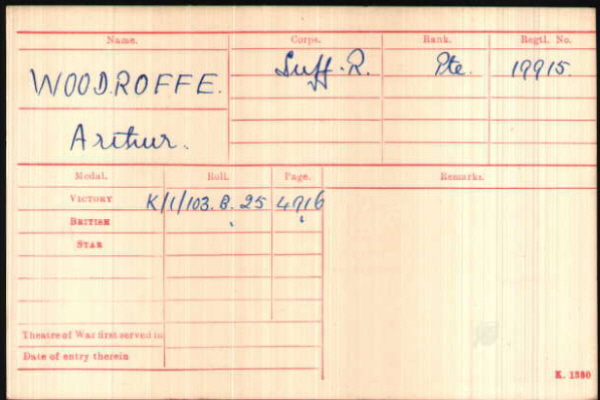 Name. Corps. Rank. Regtl. No.
WOODROFFE. Suff. R. Pte. 19915.
Arthur.
Medal. Roll. Page. Remarks.
VICTORY K/1/103.B.25 4916
BRITISH
STAR
Theatre of War first served in
Date of entry therein
K. 1380